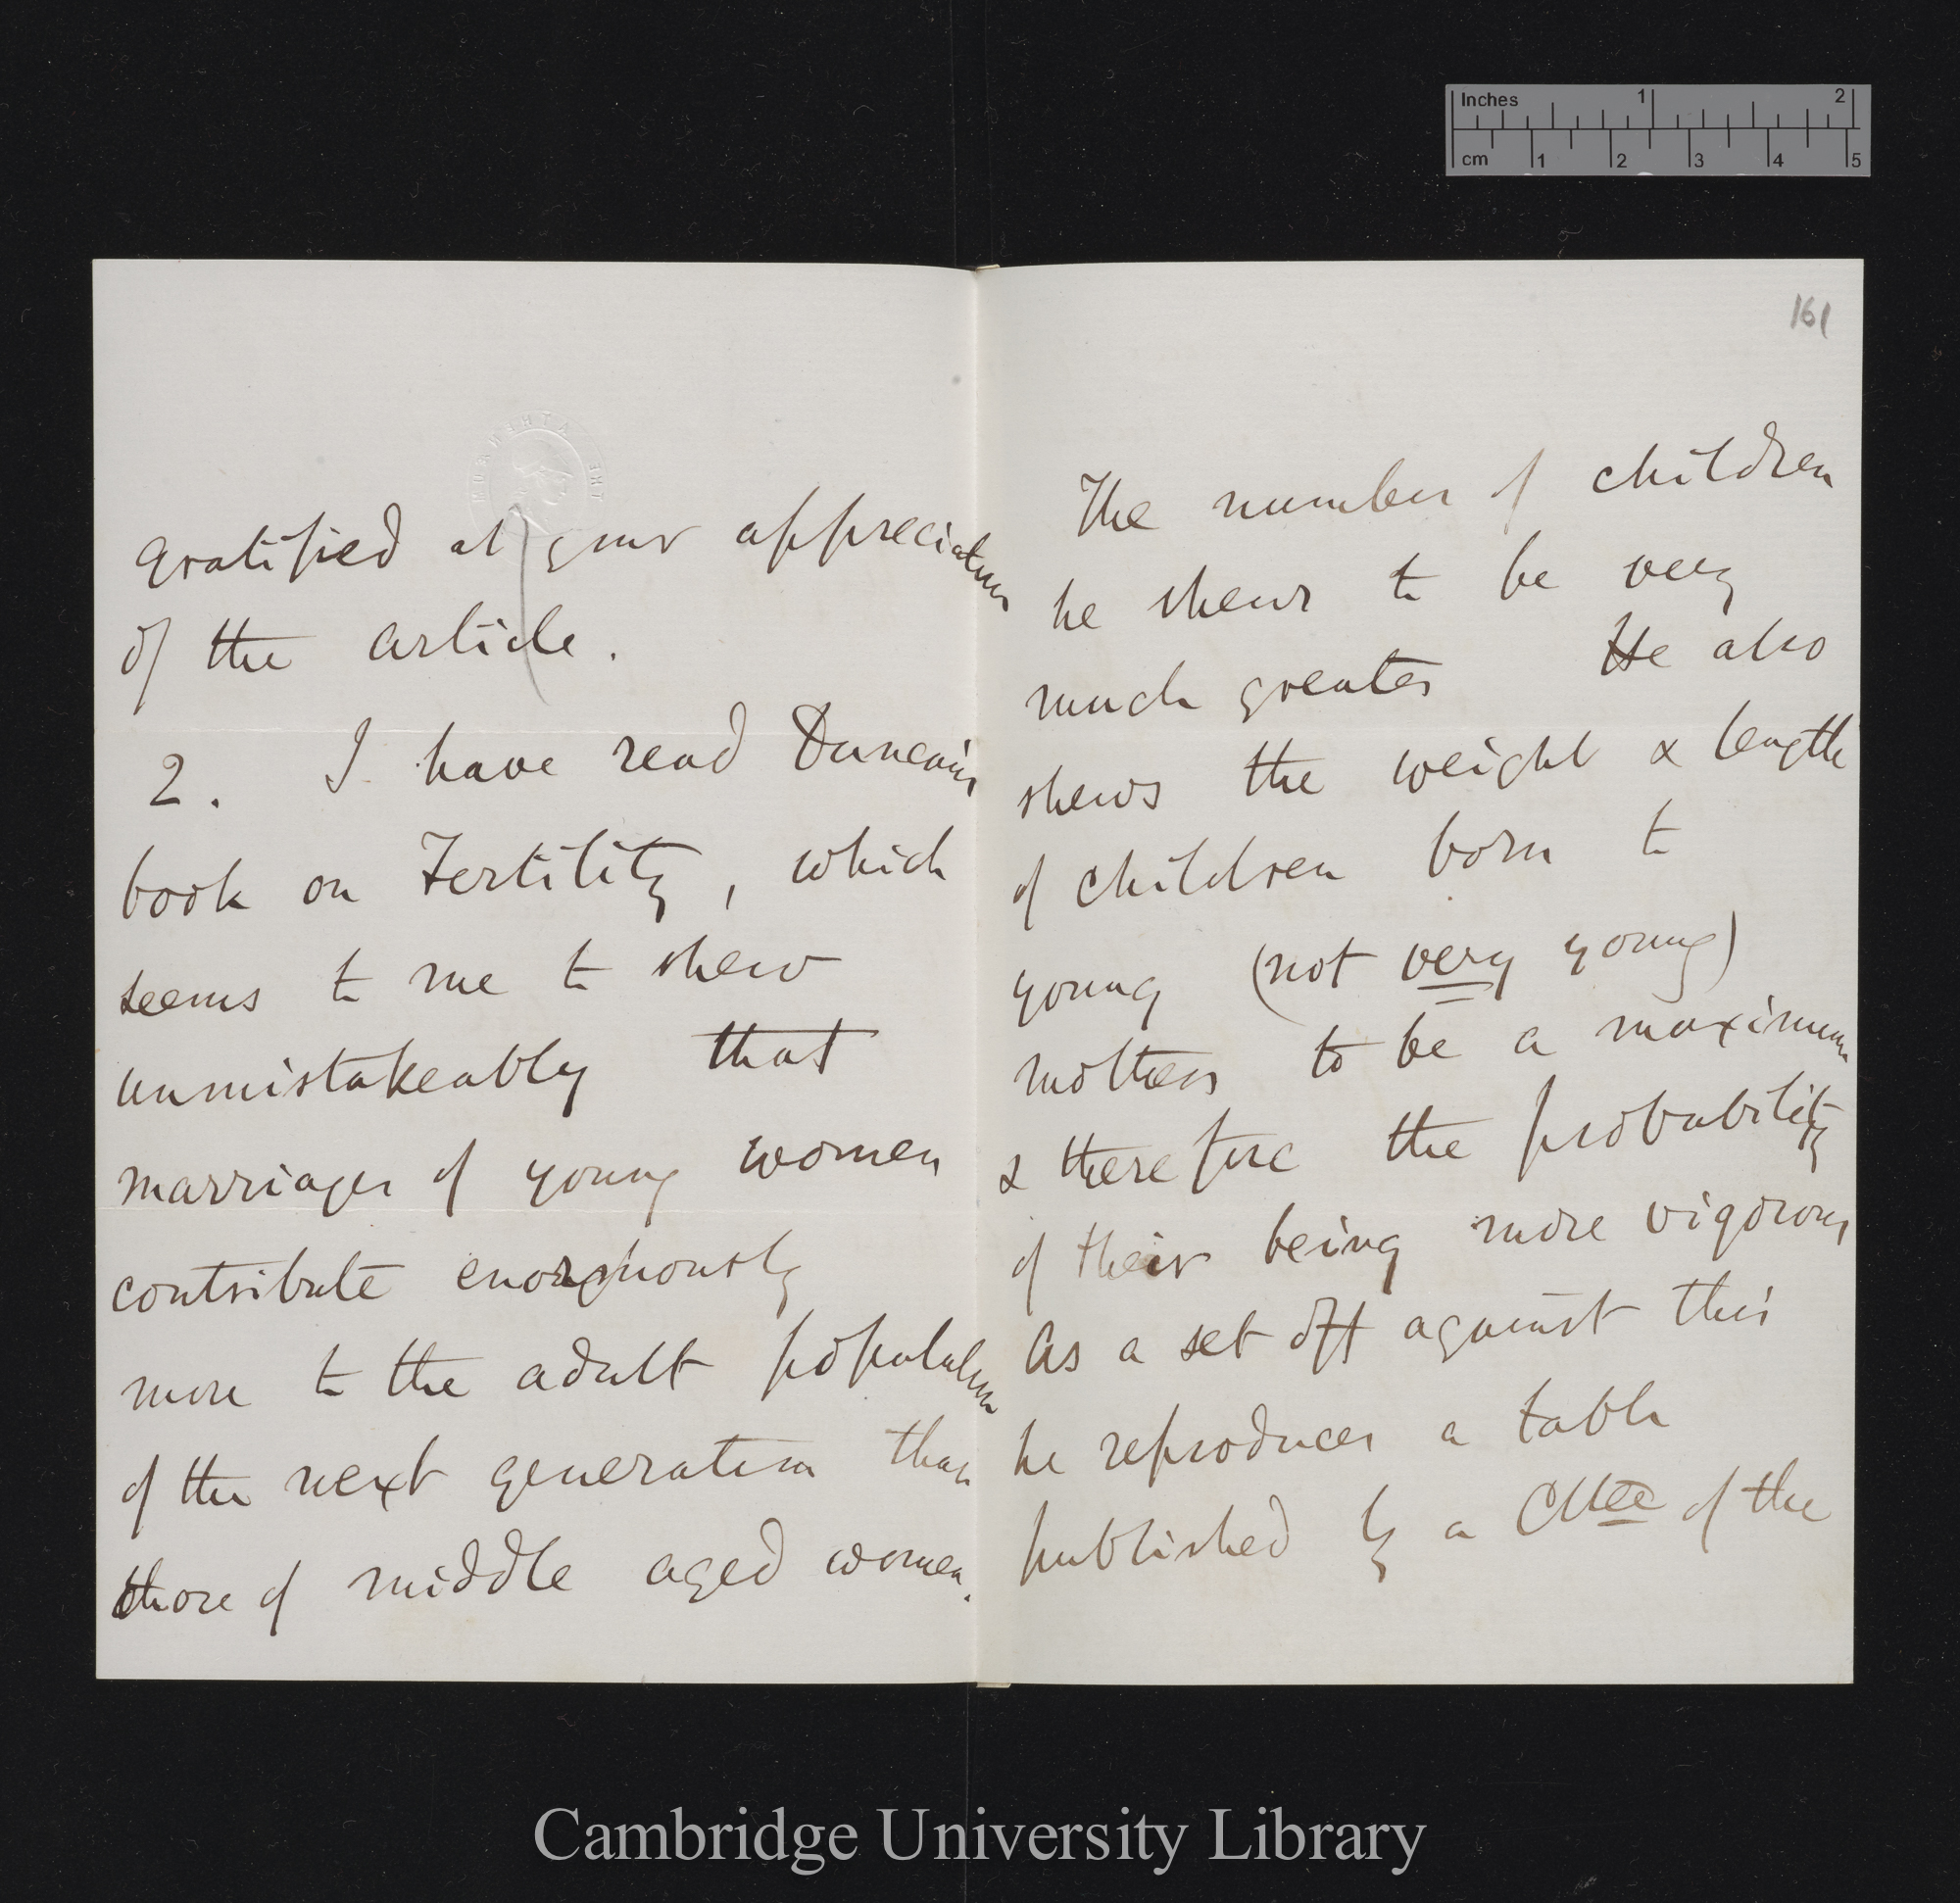 Inches 1 2
cm 1 2 3 4 5
161
THE ATHENÆUM
gratified at your appreciation
of the article.
2. I have read Duncan's
book on Fertility, which
seems to me to shew
unmistakeably that
marriages of young women
contribute enormously
more to the adult population
of the next generation than
those of middle aged women.
The number of children
he shews to be very
much greater He also
shews the weight & length
of children born to
young (not very young)
mothers to be a maximum
& therefore the probability
of their being more vigorous
As a set off against this
he reproduces a table
published by a Cttee of the
Cambridge University Library